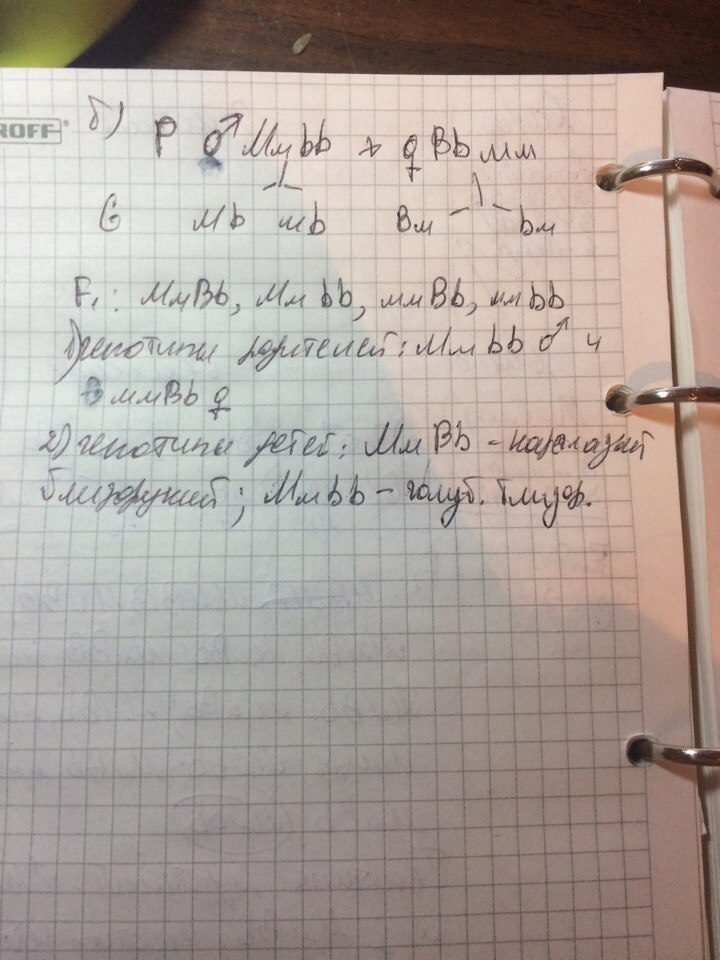 ROFF®
б) P ♂ Ммbb x ♀ Bb мм
G Мb мb Bм bм
F₁: МмBb, Ммbb, ммBb, ммbb
1) генотипы родителей: Ммbb ♂ и
ммBb ♀
2) генотипы детей: МмBb - кареглазый
близорукий; Ммbb - голуб. близор.